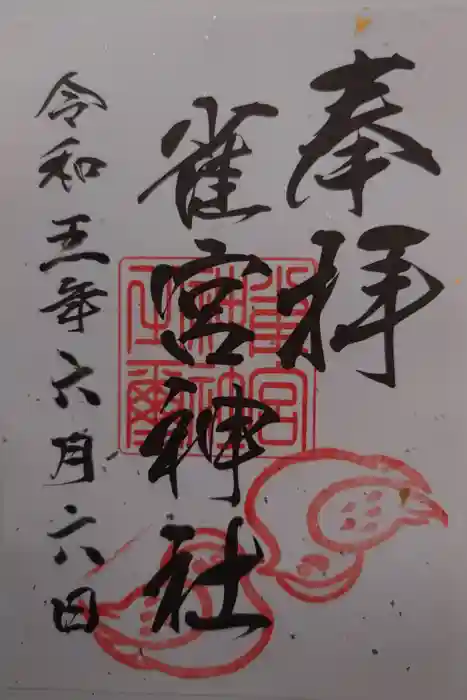 奉拝
雀宮神社
令和五年六月六日
雀宮
神社
之璽